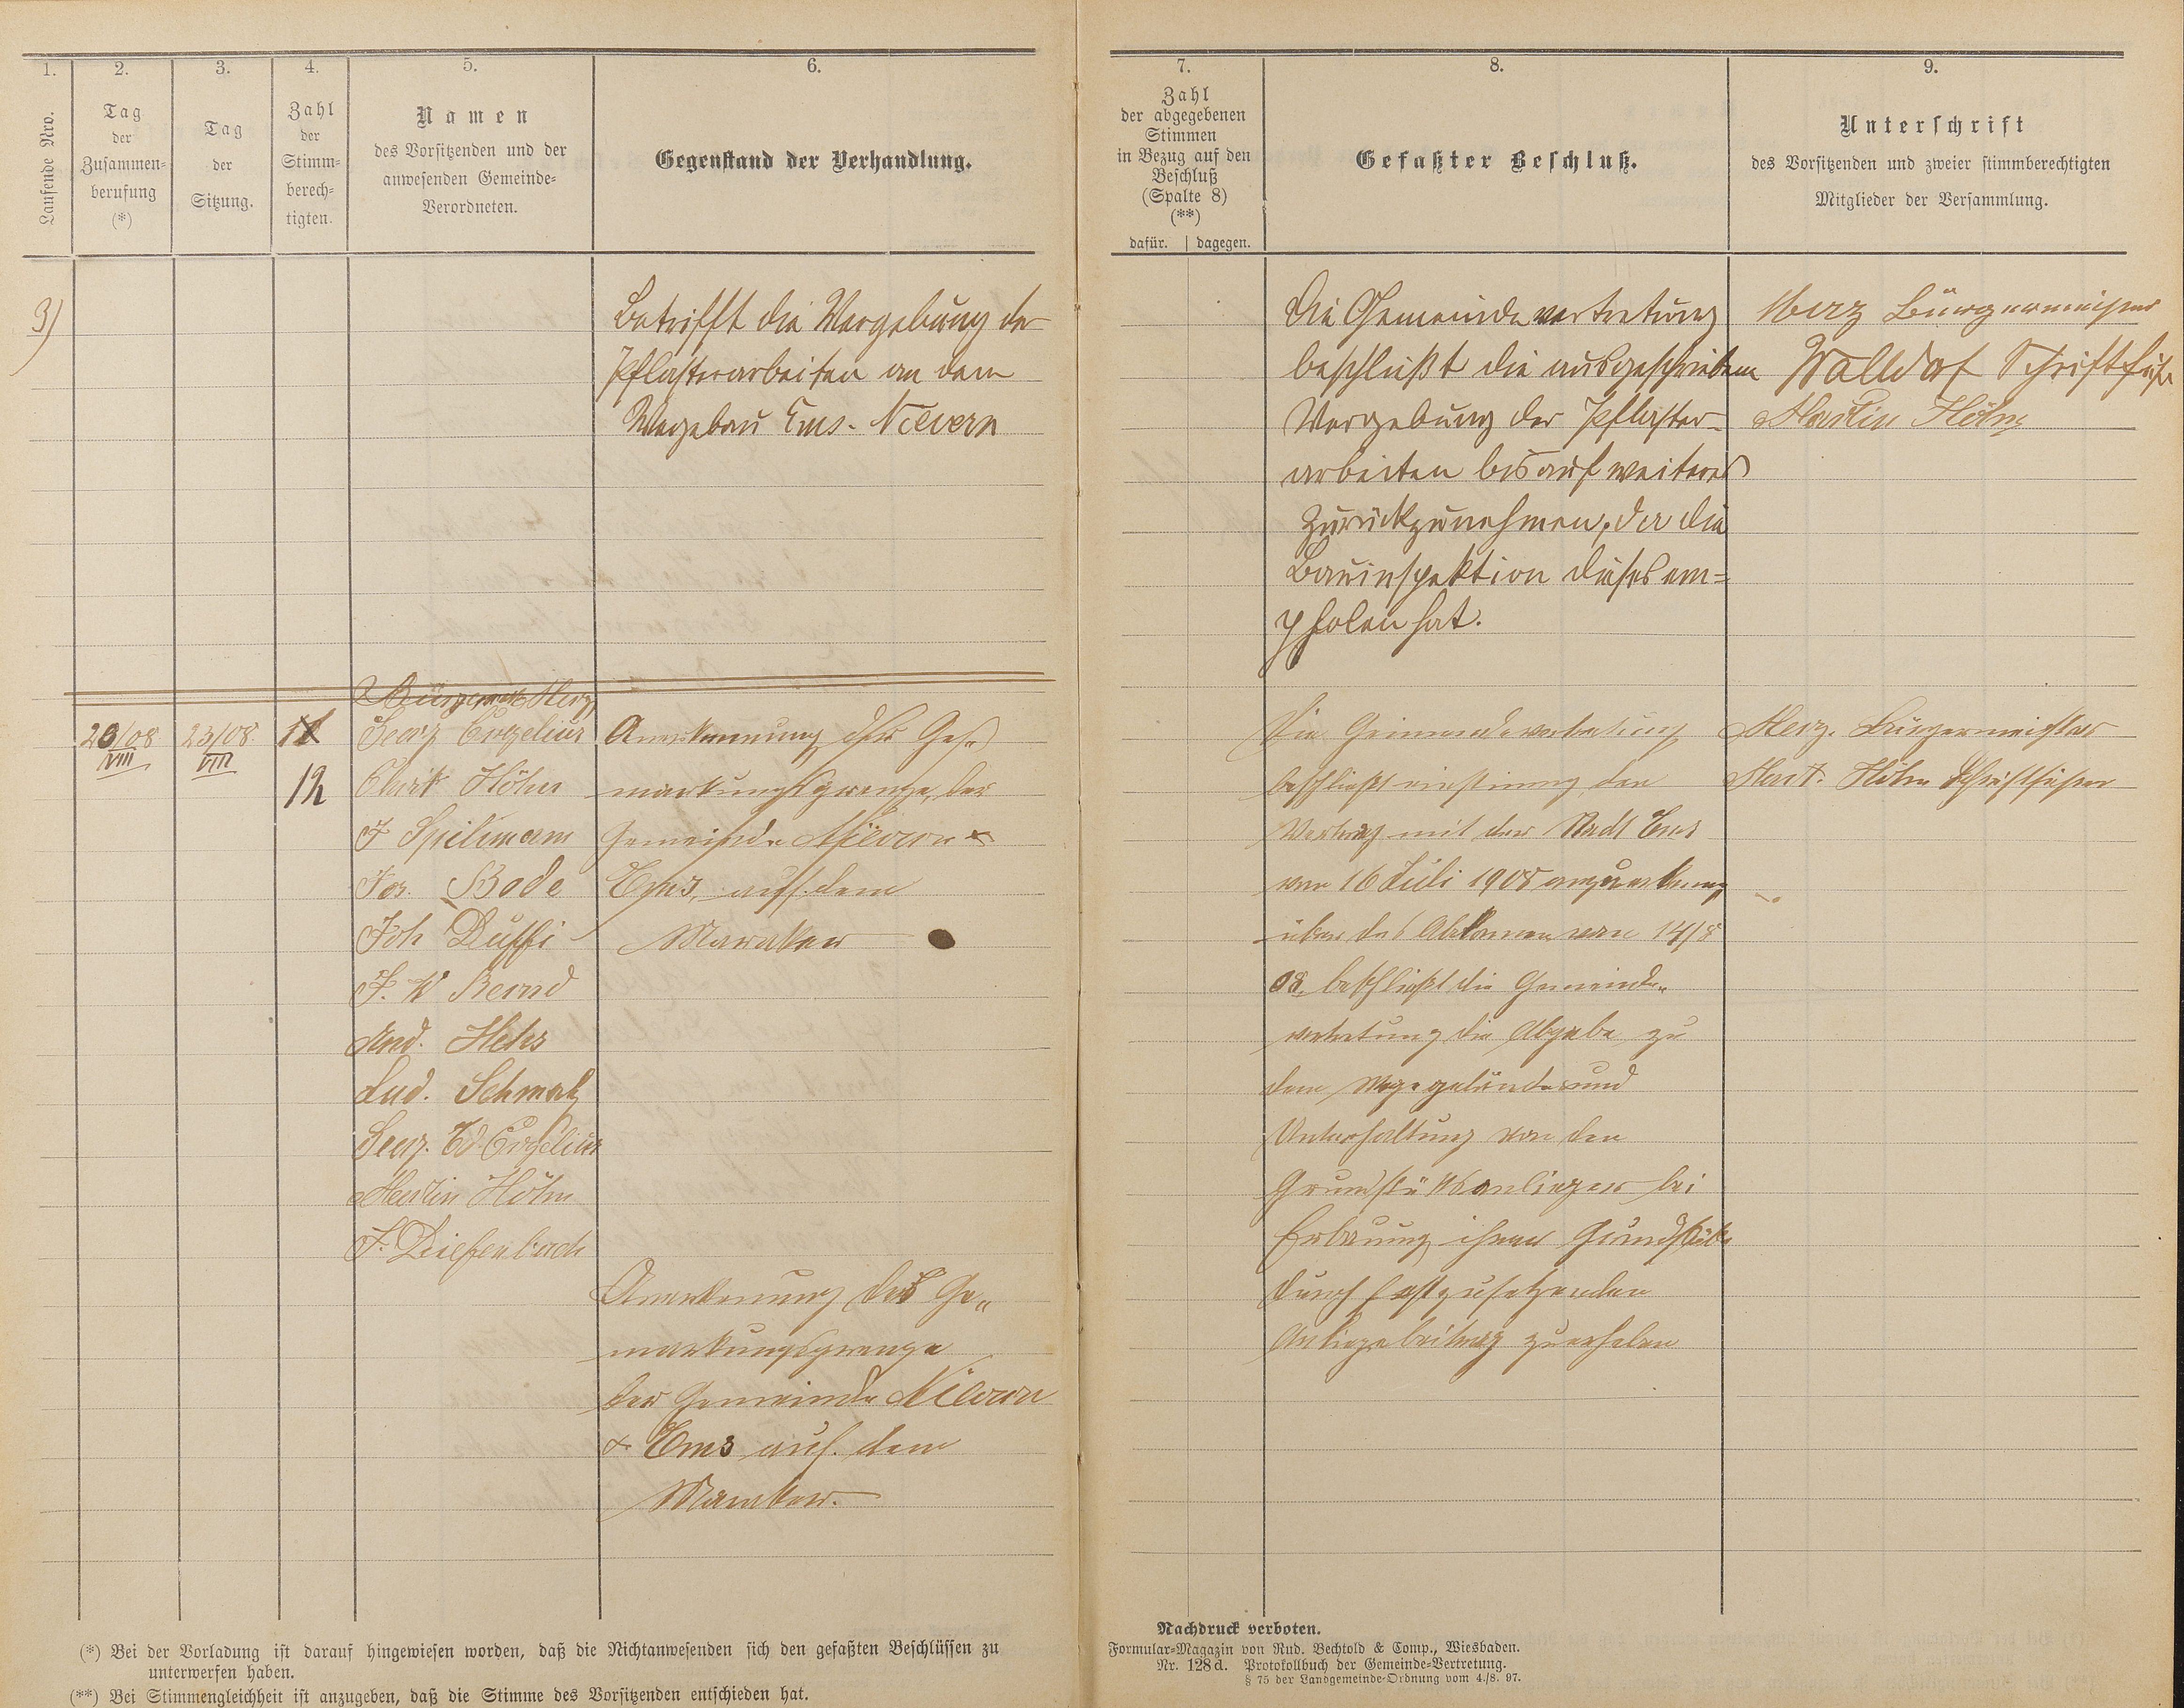 1.
Laufende Nro.
2.
Tag
der
Zusammen-
berufung
(*)
3.
Tag
der
Sitzung.
4.
Zahl
der
Stimm-
berech-
tigten.
5.
Namen
des Vorsitzenden und der
anwesenden Gemeinde-
Verordneten.
6.
Gegenstand der Verhandlung.
3)
Betrifft die Vergebung der
Pflasterarbeiten an dem
Wegebau Ems-Nievern
20/08
VIII
23/08.
VIII
12
Bürgermst Herz
Georg Corzelius
Christ Höhn
J Spielmann
Jos. Bode
Joh Duffi
J. W Bernd
And. Hehs
Lud. Schmalz
Georg. W. Corzelius
Martin Höhn
J. Diefenbach
Anerkennung der Ge-
markungsgrenze der
Gemeinde Nievern &
Ems auf dem
Anerkennung der Ge-
markungsgrenze
der Gemeinde Nievern
& Ems auf dem
7.
Zahl
der abgegebenen
Stimmen
in Bezug auf den
Beschluß
(Spalte 8)
(**)
dafür. | dagegen.
8.
Gefaßter Beschluß.
9.
Unterschrift
des Vorsitzenden und zweier stimmberechtigten
Mitglieder der Versammlung.
Die Gemeindevertretung
beschlußt die ausgeschriebene
Vergebung der Pflaster-
arbeiten bis auf weiteres
zurückzunehmen, da die
Bauinspektion dieses em-
pfolen hat.
Herz Bürgermeister
Walldorf Schriftführ
Martin Höhn
Die Gemeindevertretung
beschließt einstimmig den
Vertrag mit der Stadt Ems
vom 16 Juli 1908 anzuerkennen
über das Abkommen vom 14/8
08 beschließt die Gemeinde-
vertretung die Abgabe zu
dem Wegegelände und
Unterhaltung von den
Grundstüksanlieger bei
Erbauung ihrer Grundstücke
durch festzusetzenden
Anliegebeitrag zu erheben
Herz. Bürgermeister
Mart. Höhn Schriftführer
(*) Bei der Vorladung ist darauf hingewiesen worden, daß die Nichtanwesenden sich den gefaßten Beschlüssen zu
unterwerfen haben.
(**) Bei Stimmengleichheit ist anzugeben, daß die Stimme des Vorsitzenden entschieden hat.
Nachdruck verboten.
Formular-Magazin von Rud. Bechtold & Comp., Wiesbaden.
Nr. 128 d. Protokollbuch der Gemeinde-Vertretung.
§ 75 der Landgemeinde-Ordnung vom 4./8. 97.